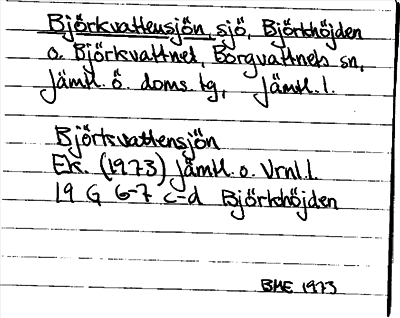 Björkvattensjön, sjö, Björkhöjden
o. Björkvattnet, Borgvattnets sn,
Jämtl. ö. doms. tg, Jämtl. l.
Björkvattensjön
Ek. (1973) Jämtl. o. Vrnl. l.
19 G 6-7 c-d Björkhöjden
BME 1973